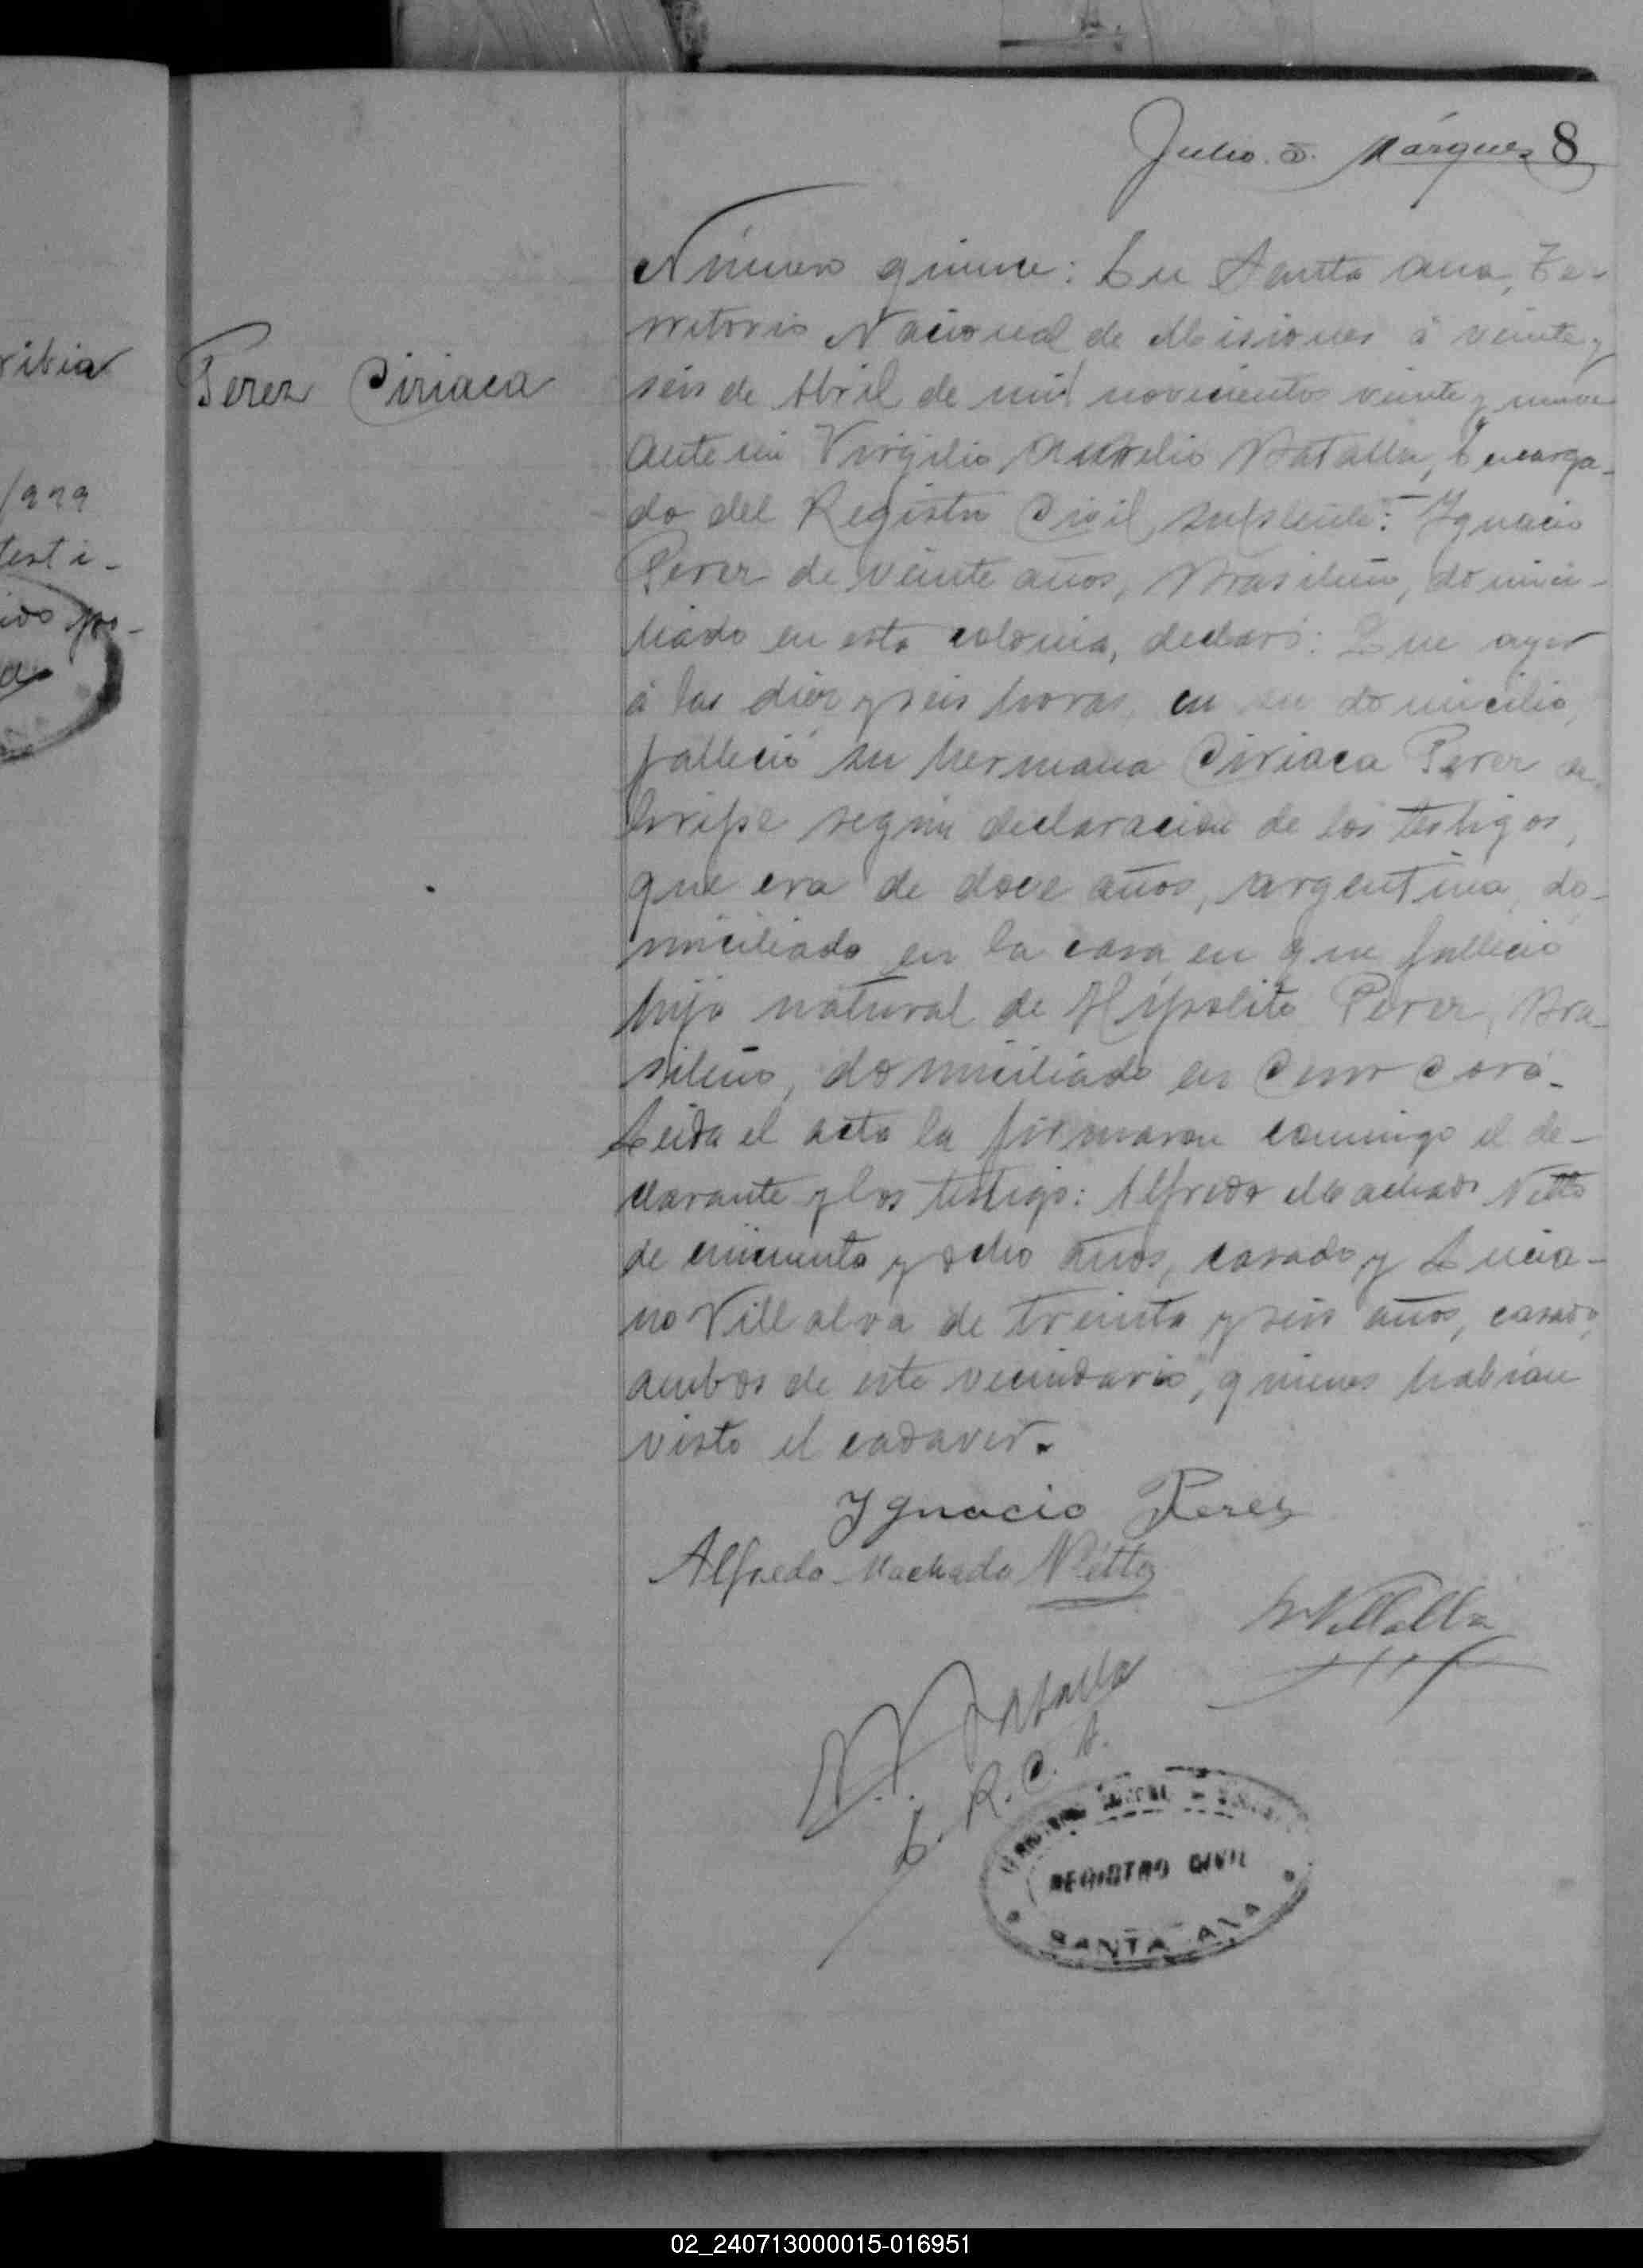 Julio. D. Márquez 8
Número quince: En Santa Ana, Te-
rritorio Nacional de Misiones á veinte y
Perez Ciriaca
seis de Abril de mil novecientos veinte y nueve
ante mi Virgilio Aurelio Batalla, Encarga-
do del Registro Civil Suplente: Ignacio
Perez de veinte años, Brasileño, domici-
liado en esta colonia, declaró: Que ayer
á las diez y seis horas, en su domicilio,
falleció su hermana Ciriaca Perez de
Gripe según declaración de los testigos,
que era de doce años, argentina, do-
miciliado en la casa en que falleció
hijo natural de Hípolito Perez, Bra-
sileño, domiciliado en Cerro Corá.
Leida el acta la firmaron conmigo el de-
clarante y los testigo: Alfredo Machado Netto
de cincuenta y ocho años, casado y Lucia-
no Villalva de treinta y seis años, casado,
ambos de este vecindario, quienes habían
visto el cadaver.
Ignacio Perez
Alfredo Machado Netto
Villalba
Batalla
E. R. C. S.
REGISTRO CIVIL
SANTA ANA
ribia
1929
testi-
ido po-
02_240713000015-016951